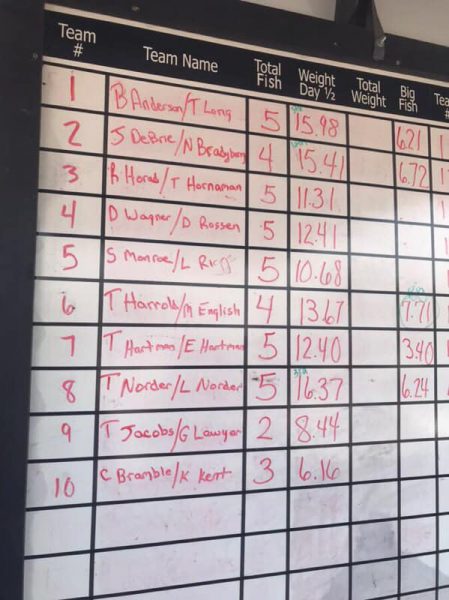 Team # Team Name Total Fish Weight Day ½ Total Weight Big Fish
1 B Anderson/T Long 5 15.98 6.21
2 J DeBrie/N Bradyburg 4 15.41 6.72
3 T Hornaman 5 11.31
4 D Wagner/D Rossen 5 12.41
5 S Monroe/L 5 10.68
6 T Harrold/M English 4 13.67 7.71
7 T Hartman/E Hartman 5 12.40 3.40
8 T Norder/L Norder 5 16.37 6.24
9 T Jacobs/G Lawyer 2 8.44
10 C Bramble/K Kent 3 6.16